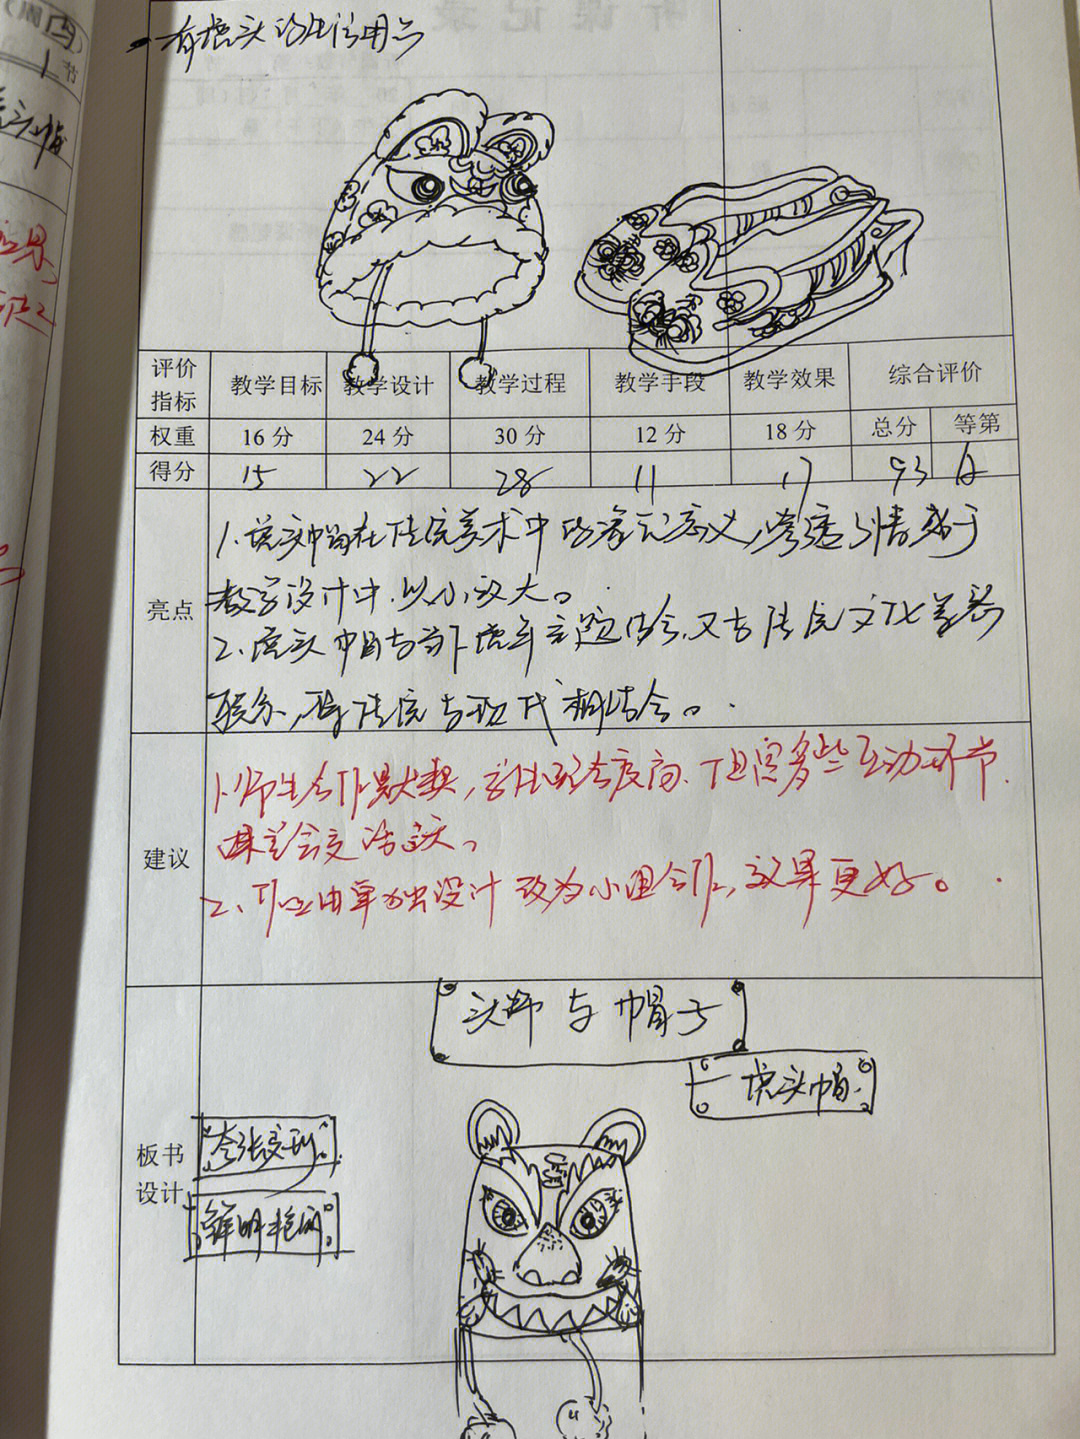 有虎头的生活用品
评价指标
教学目标
教学设计
教学过程
教学手段
教学效果
综合评价
权重
16 分
24 分
30 分
12 分
18 分
总分
等第
得分
15
22
28
11
17
93
A
亮点
1.虎头帽在传统美术中的象征意义,渗透情感于
教学设计中,以小放大。
2.虎头帽与当下虎年主题结合,又与传统文化
联系,将传统与现代相结合。
建议
1.师生合作默契,学生配合度高,但需多些互动环节,
课堂会更活跃。
2.可应由单独设计改为小组合作,效果更好。
板书设计
头饰与帽子
虎头帽
夸张变形
鲜明艳丽
节
1